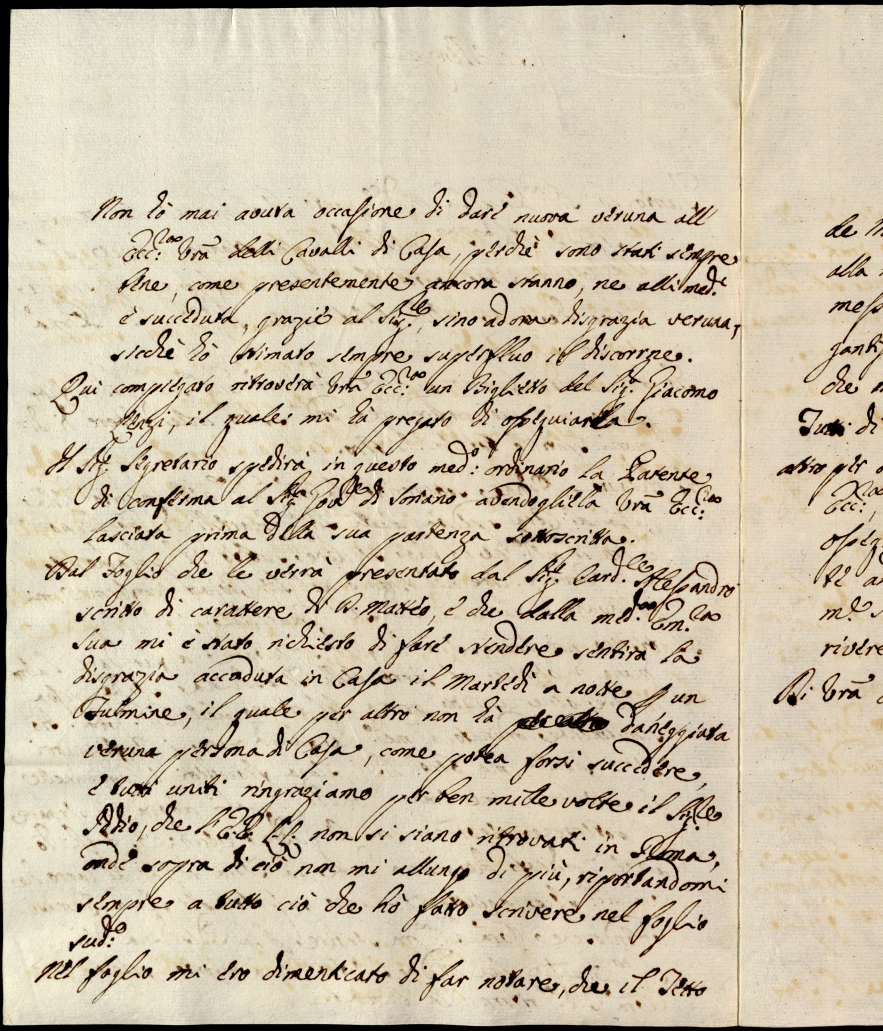 Non hò mai avuta occasione di dare nuova veruna all'
Ecc:za Vrã delli Cavalli di Casa, perchè sono stati sempre
bene, come presentemente ancora stanno, ne alli med:i
è succeduta, grazie al Sig:re, sino adora disgrazia veruna,
sicchè hò stimato sempre superfluo il discorrne.
Qui compiegato ritroverà Vrã Ecc:za un Biglietto del Sig:r Giacomo
il quale mi hà pregato di ossequiarla.
Il Sig:r Segretario spedirà in questo med:o ordinario la Patente
di conferma al Sig:r Gov:re di Soriano avendoglielà Vrã Ecc:za
lasciata prima della sua partenza sottoscritta.
Dal Foglio che le verrà presentato dal Sig:r Card:le Alessandro
scritto di carattere di D. Mattéo, è che dalla med:ma Em:za
sua mi è stato richiesto di fare stendere sentirà la
disgrazia accaduta in Casa il Martedì a notte p un
Fulmine, il quale per altro non hà daneggiata
veruna persona di Casa, come potea forsi succedere,
è tutti uniti ringraziamo per ben mille volte il Sig:re
Iddio, che l'EE. LL. non si siano ritrovati in Roma,
onde sopra di ciò non mi allungo di più, riportandomi
sempre a tutto ciò che hò fatto scrivere nel foglio
sud:o
Nel foglio mi ero dimenticato di far notare, che il Tetto
de
alla
mess
ganti
che
Tutti di
altro per
Ecc:za
osseq
te
m:e
rivere
Di Vrã